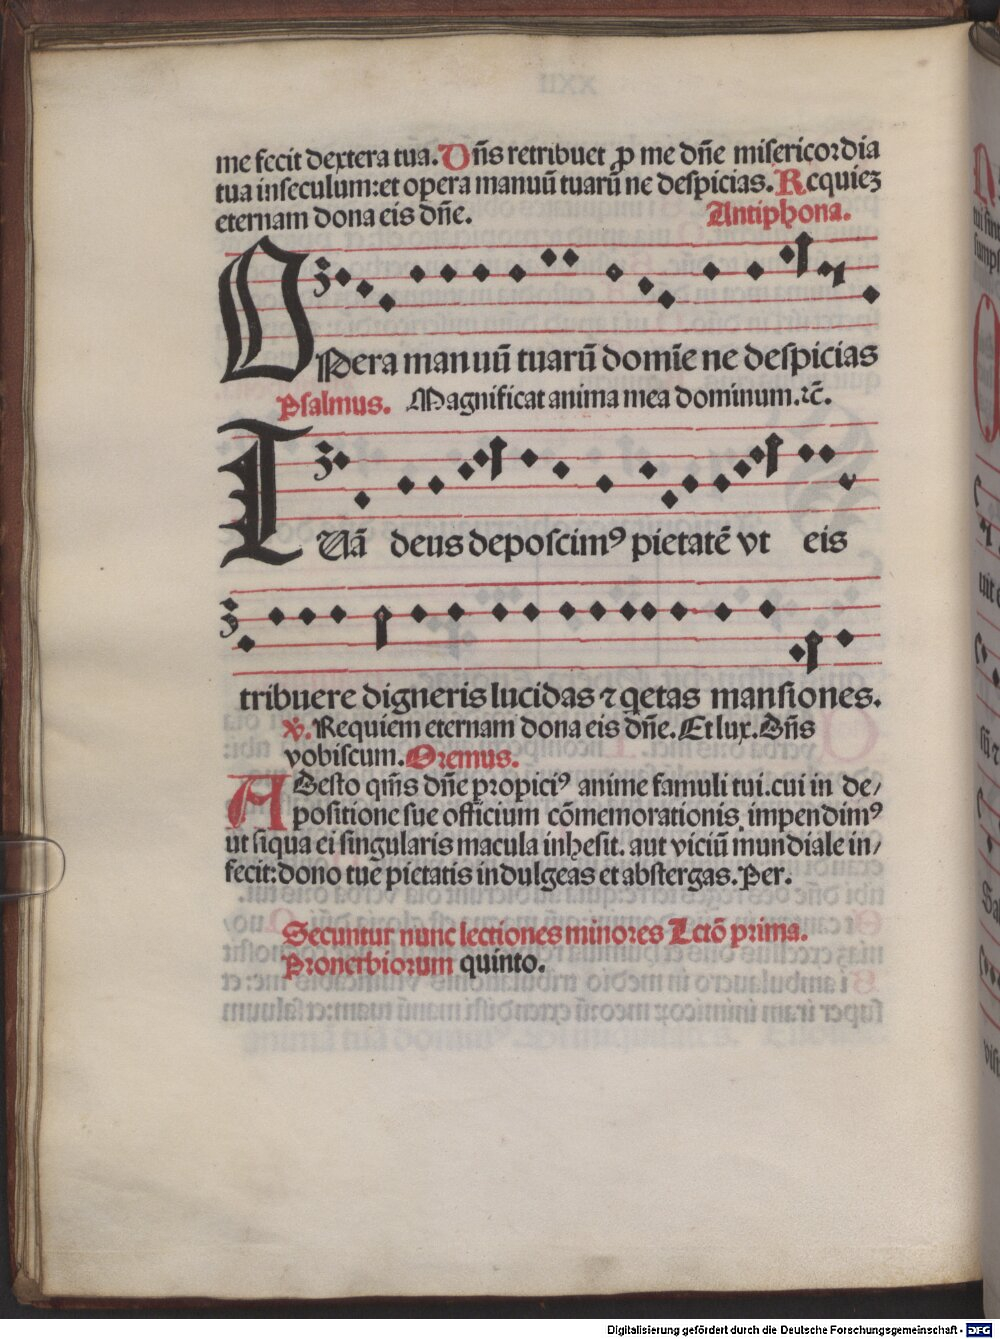 me fecit dextera tua. Dn̄s retribuet ꝓ me dn̄e misericordia
tua inseculum: et opera manuū tuarū ne despicias. Requieꝫ
eternam dona eis dn̄e. Antiphona.
OPera manuū tuarū domīe ne despicias
Psalmus. Magnificat anima mea dominum. ⁊c̄.
TUā deus deposcimꝰ pietatē vt eis
tribuere digneris lucidas ⁊ q̄etas mansiones.
℣. Requiem eternam dona eis dn̄e. Et lux. Dn̄s
vobiscum. Oremus.
ADesto qm̄s dn̄e propiciꝰ anime famuli tui. cui in de/
positione sue officium cōmemorationis impendimꝰ
ut siqua ei singularis macula inhesit. aut viciū mundiale in/
fecit: dono tue pietatis indulgeas et abstergas. Per.
Secuntur nunc lectiones minores Lctō prima.
Prouerbiorum quinto.
Digitalisierung gefördert durch die Deutsche Forschungsgemeinschaft - DFG